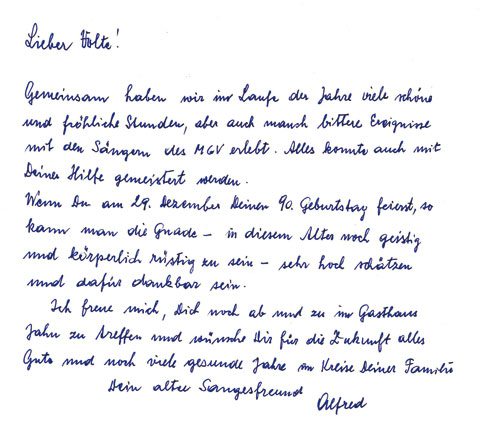 Lieber Volte!
Gemeinsam haben wir im Laufe der Jahre viele schöne
und fröhliche Stunden, aber auch manch bittere Ereignisse
mit den Sängern des MGV erlebt. Alles konnte auch mit
Deiner Hilfe gemeistert werden.
Wenn Du am 29. Dezember Deinen 90. Geburtstag feierst, so
kann man die Gnade – in diesem Alter noch geistig
und körperlich rüstig zu sein – sehr hoch schätzen
und dafür dankbar sein.
Ich freue mich, Dich noch ab und zu im Gasthaus
Jahn zu treffen und wünsche Dir für die Zukunft alles
Gute und noch viele gesunde Jahre im Kreise Deiner Familie
Dein alter Sangesfreund
Alfred